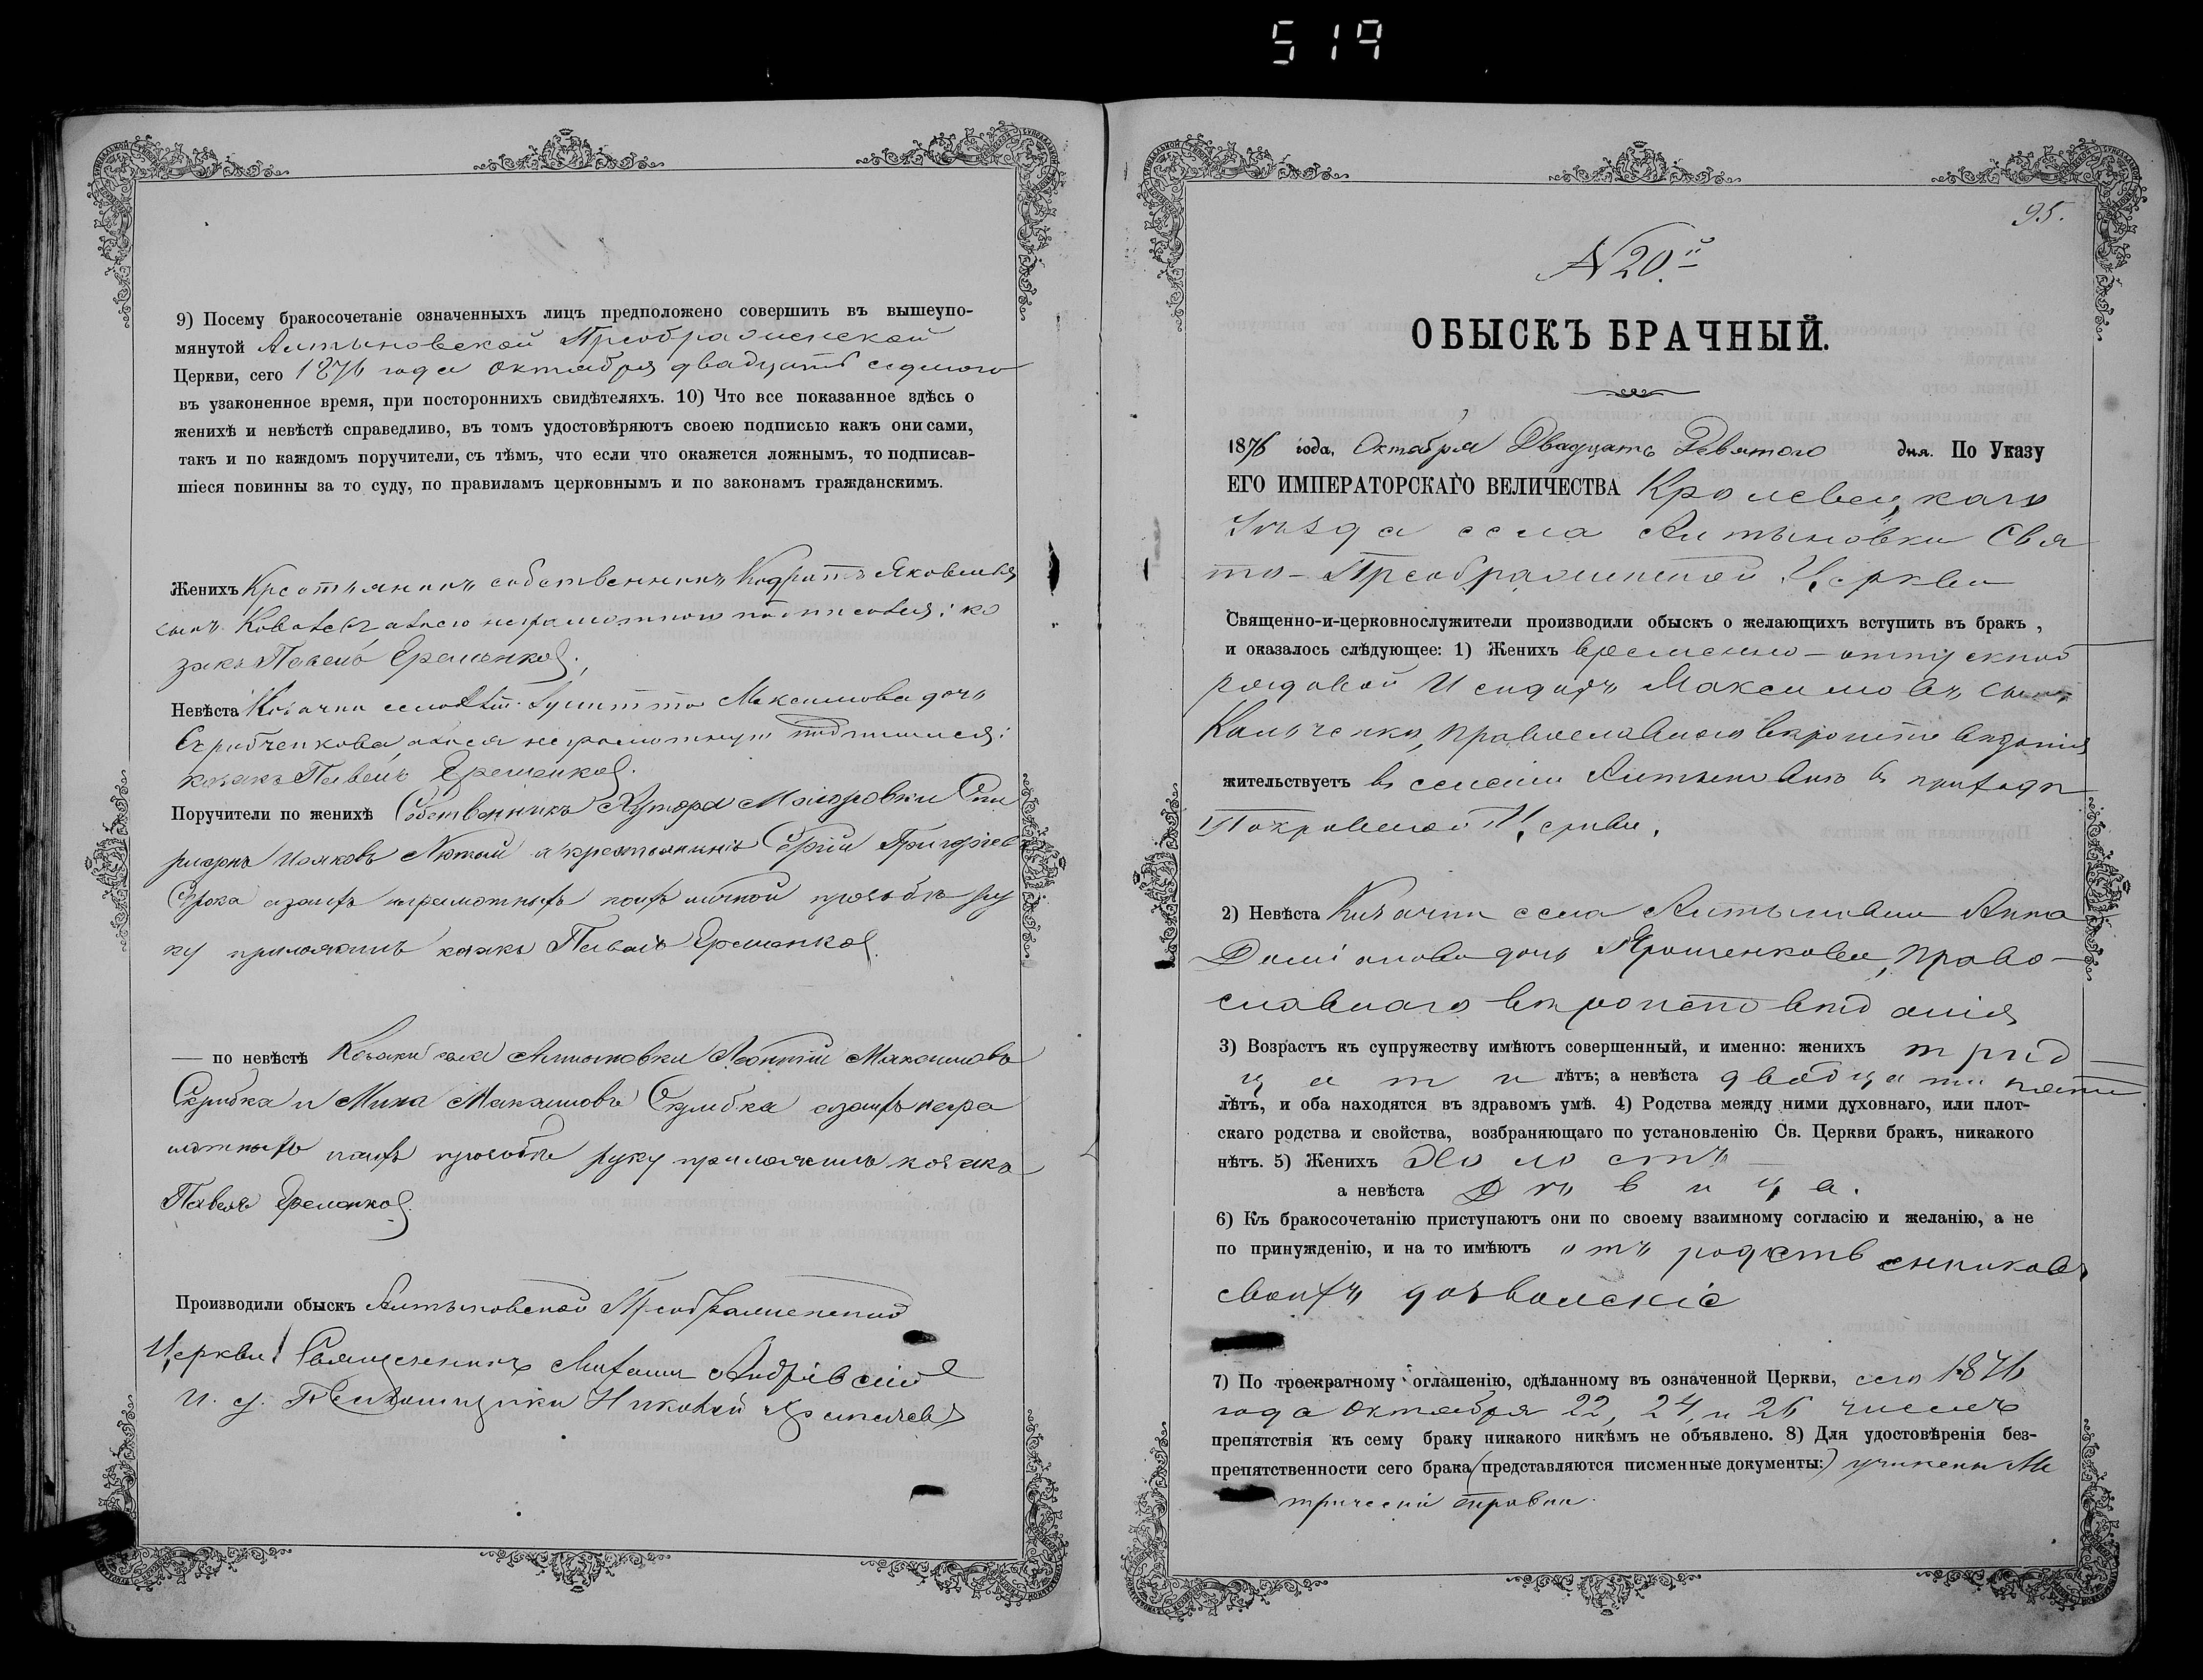 519
9) Посему бракосочетаніе означенныхъ лицъ предположено совершить въ вышеупо-
мянутой Алтыновской Преображенской
Церкви, сего 1876 года октября двадцать седмого
въ узаконенное время, при постороннихъ свидѣтеляхъ. 10) Что все показанное здѣсь о
женихѣ и невѣстѣ справедливо, въ томъ удостовѣряютъ своею подписью какъ они сами,
такъ и по каждомъ поручители, съ тѣмъ, что если что окажется ложнымъ, то подписав-
шіеся повинны за то суду, по правиламъ церковнымъ и по законамъ гражданскимъ.
Женихъ Крестьянинъ собственникъ Кодратъ Яковлевъ
сынъ неграмотного ко
закъ Павелъ Еременко
Невѣста Максимова дочь
Скрибченкова, а вместо неграмотную подписался:
козакъ Павелъ Еременко.
Поручители по женихѣ Собственникъ Хутора Спи
ридонъ Яковъ Лютый и крестьянинъ Сергій Григоріев
Сорока а за ихъ неграмотныхъ поихъ личной прозьбѣ ру
ку приложилъ козакъ Павелъ Еременко.
— по невѣстѣ Козаки села Алтыновки Леонтій Максимовъ
Скрибка и Мина Максимовъ Скрибка а за ихъ негра
мотныхъ поихъ прозьбѣ руку приложилъ козакъ
Павелъ Еременко.
Производили обыскъ Алтыновской Преображенской
Церкви Священникъ Михаилъ
И. д. Николай
95.
N 20.й
ОБЫСКЪ БРАЧНЫЙ.
1876 года, Октября Двадцать Девятого дня. По Указу
ЕГО ИМПЕРАТОРСКАГО ВЕЛИЧЕСТВА Кролевецкаго
Уѣзда села Алтыновки Свя
то-Преображенской Церкви
Священно-и-церковнослужители производили обыскъ о желающихъ вступить въ бракъ ,
и оказалось слѣдующее: 1) Женихъ временно-отпускной
рядовой Исидоръ Максимовъ сынъ
Кальченко, православнаго вѣроисповѣданія
жительствуетъ въ селеніи Алтыновкѣ въ приходѣ
Покровской Церкви.
2) Невѣста Козачка села Алтыновки Анна
Даміанова дочь Ярошенкова, право-
славнаго вѣроисповѣданія
3) Возрастъ къ супружеству имѣютъ совершенный, и именно: женихъ трид
цати лѣтъ; а невѣста двадцати пяти
лѣтъ, и оба находятся въ здравомъ умѣ. 4) Родства между ними духовнаго, или плот-
скаго родства и свойства, возбраняющаго по установленію Св. Церкви бракъ, никакого
нѣтъ. 5) Женихъ Холостъ
а невѣста Дѣвица.
6) Къ бракосочетанію приступаютъ они по своему взаимному согласію и желанію, а не
по принужденію, и на то имѣютъ отъ родственниковъ
своихъ дозволеніе
7) По троекратному оглашенію, сдѣланному въ означенной Церкви, сего 1876
года октября 22, 24, и 26 числъ
препятствія къ сему браку никакого никѣмъ не объявлено. 8) Для удостовѣренія без-
препятственности сего брака (представляются писменные документы:) учинены Ме
трическій справки.